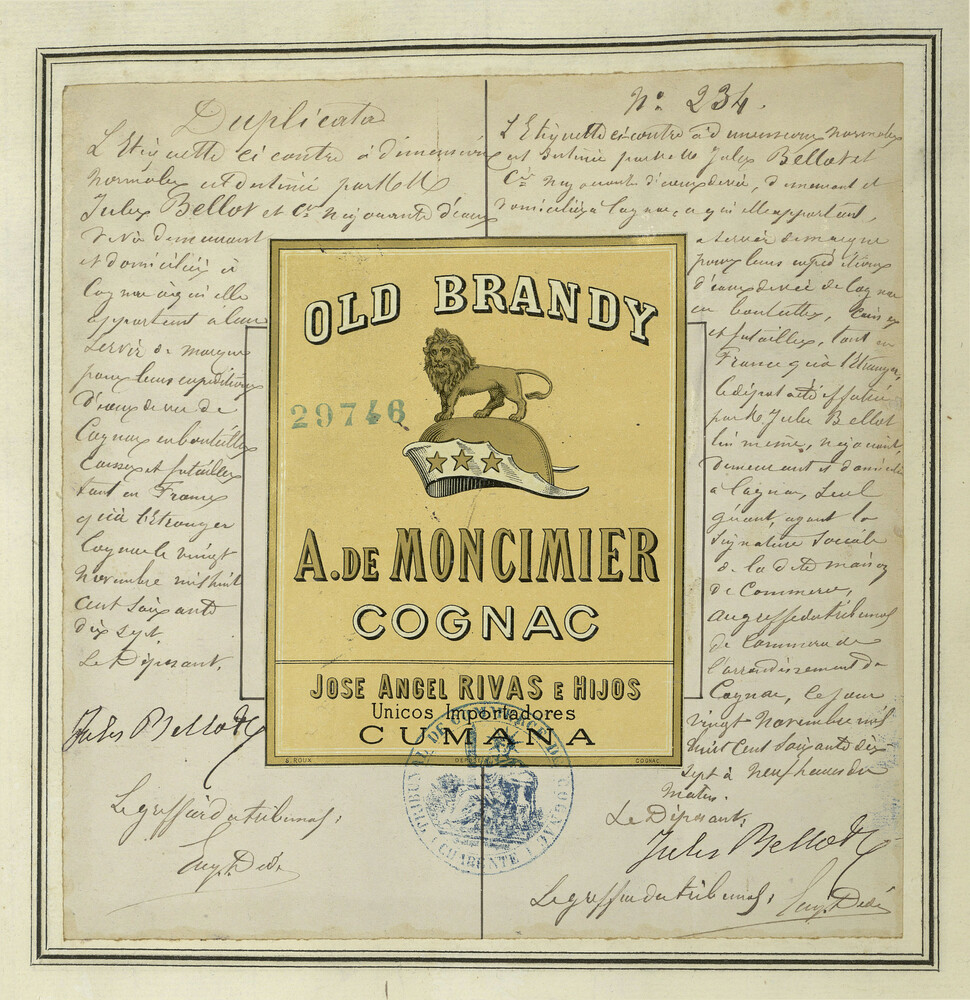 Duplicata
L'Etiquette ci contre à dimensions
normales est destinée par MM
Jules Bellot et Cie négociants d'eaux
de vie demeurant
et domiciliés à
Cognac à qui elle
appartient a leur
servir de marque
pour leurs expéditions
d'eaux de vie de
Cognac en bouteilles
Caisses et futailles
tant en France
qu'à l'Etranger
Cognac le vingt
Novembre mil huit
cent soixante
dix sept.
Le Déposant,
Jules Bellot & Ce
Le greffier du tribunal,
Eug. Dedé
No 234.
L'Etiquette ci-contre à dimensions normales
est destinée par MM Jules Bellot et
Cie négociants d'eaux de vie, demeurant et
domiciliés à Cognac, a qui elle appartient,
a servir de marque
pour leurs expéditions
d'eaux de vie de Cognac
en bouteilles, caisses
et futailles, tant en
France qu'à l'Etranger,
le dépot a été effectué
par M. Jules Bellot
lui même, négociant,
demeurant et domicilié
à Cognac, seul
gérant, ayant la
signature sociale
de la dite maison
de Commerce,
au greffe du tribunal
de Commerce de
l'arrondissement de
Cognac, ce jour
vingt Novembre mil
huit cent soixante dix
sept à neuf heures du
matin.
Le Déposant,
Jules Bellot & Ce
Le greffier du tribunal,
Eug. Dedé
OLD BRANDY
29746
A. DE MONCIMIER
COGNAC
JOSE ANGEL RIVAS E HIJOS
Unicos Importadores
CUMANA
G. ROUX
COGNAC
TRIBUNAL DE COMMERCE DE COGNAC
CHARENTE